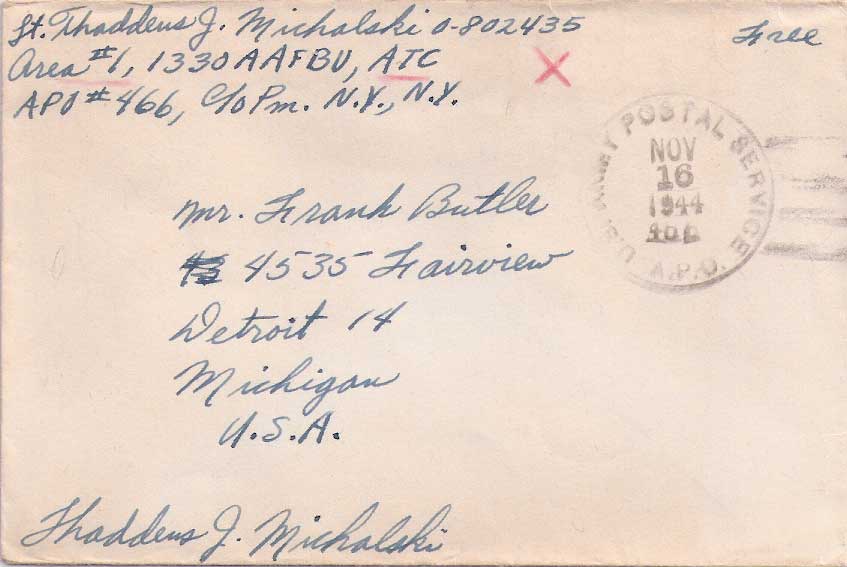 Lt. Thaddeus J. Michalski O-802435
Free
Area #1, 1330 AAFBU, ATC
X
APO #466, C/o Pm. N.Y., N.Y.
U.S. ARMY POSTAL SERVICE
NOV
16
1944
A.P.O.
Mr. Frank Butler
4535 Fairview
Detroit 14
Michigan
U.S.A.
Thaddeus J. Michalski